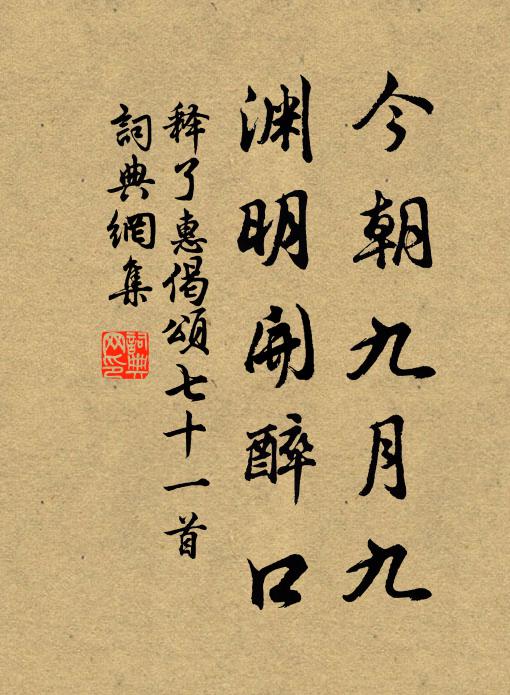 今朝九月九
渊明开醉口
释了惠偈頌七十一首
詞典網集
詞典网印